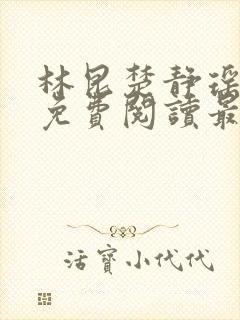 林昆楚静瑶
免費閱讀最
活寶小代代